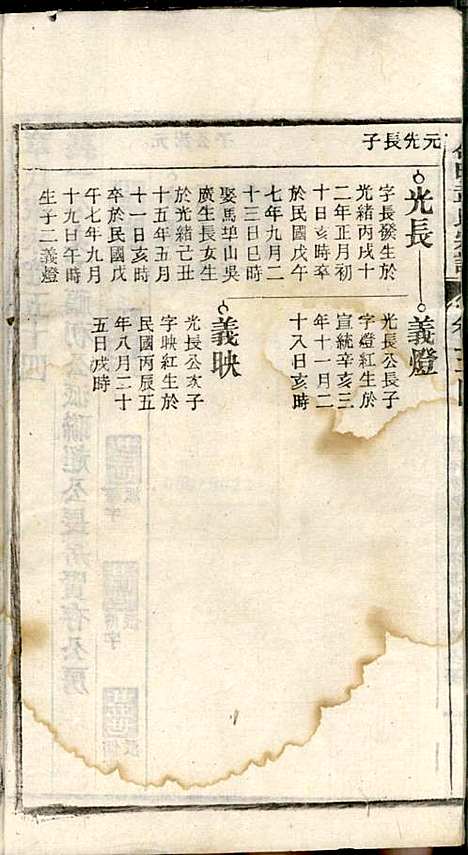 元先長子
光長
字長發生於
光緒丙戌十
二年正月初
十日亥時卒
於民國戊午
七年九月二
十三日巳時
娶馬埠山吳
廣生長女生
於光緒己丑
十五年五月
十一日亥時
卒於民國戊
午七年九月
十九日午時
生子二義燈
義燈
光長公長子
字燈紅生於
宣統辛亥三
年十一月二
十八日亥時
義映
光長公次子
字映紅生於
民國丙辰五
年八月二十
五日戌時